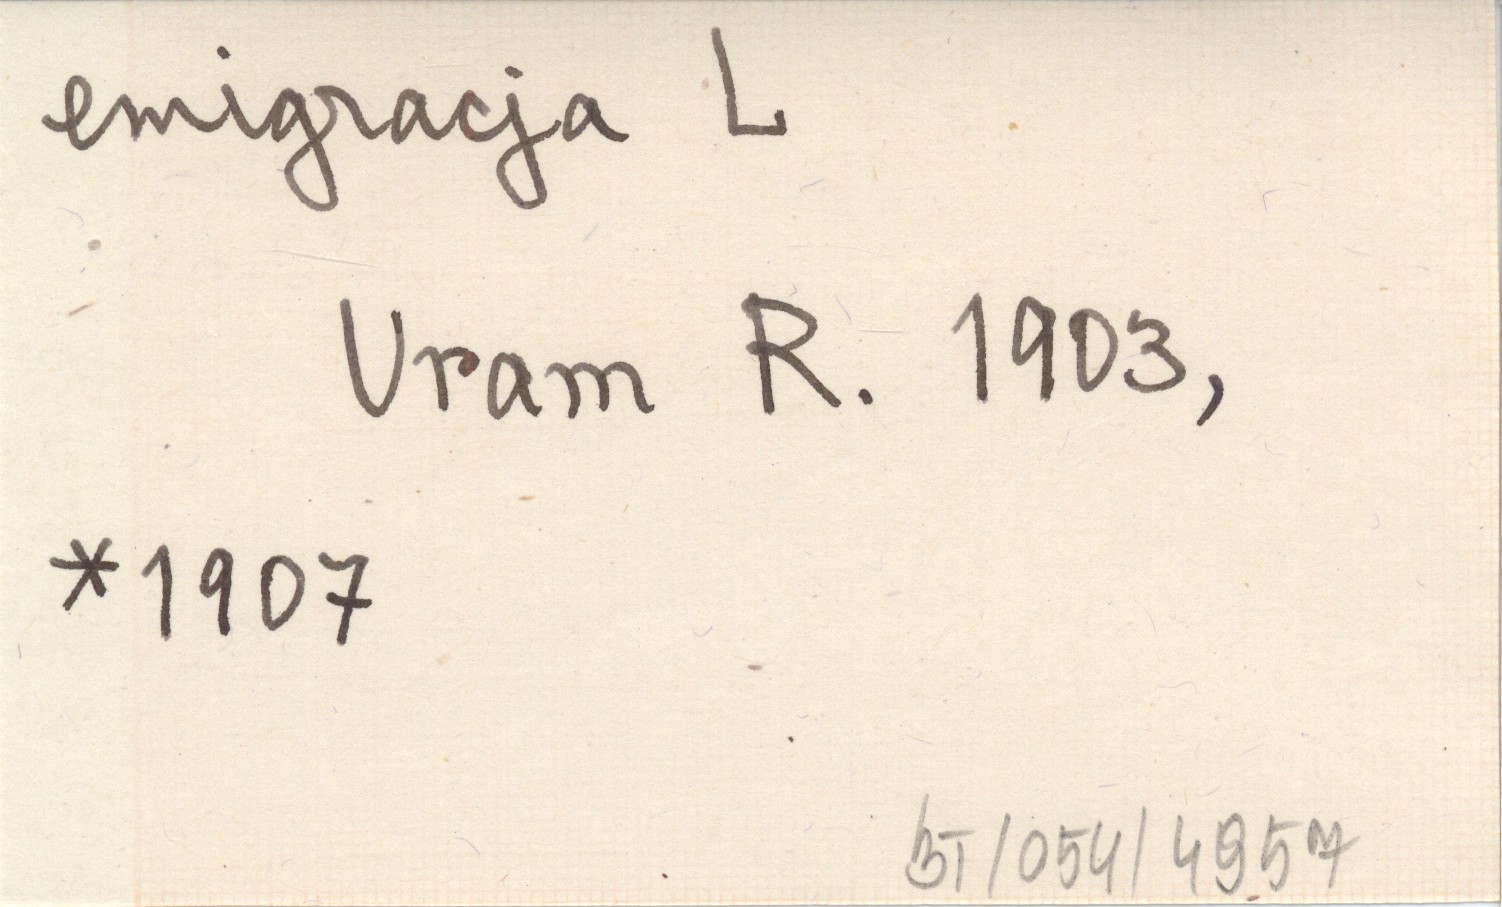 emigracja L
Uram R. 1903,
*1907
BT/054/4957